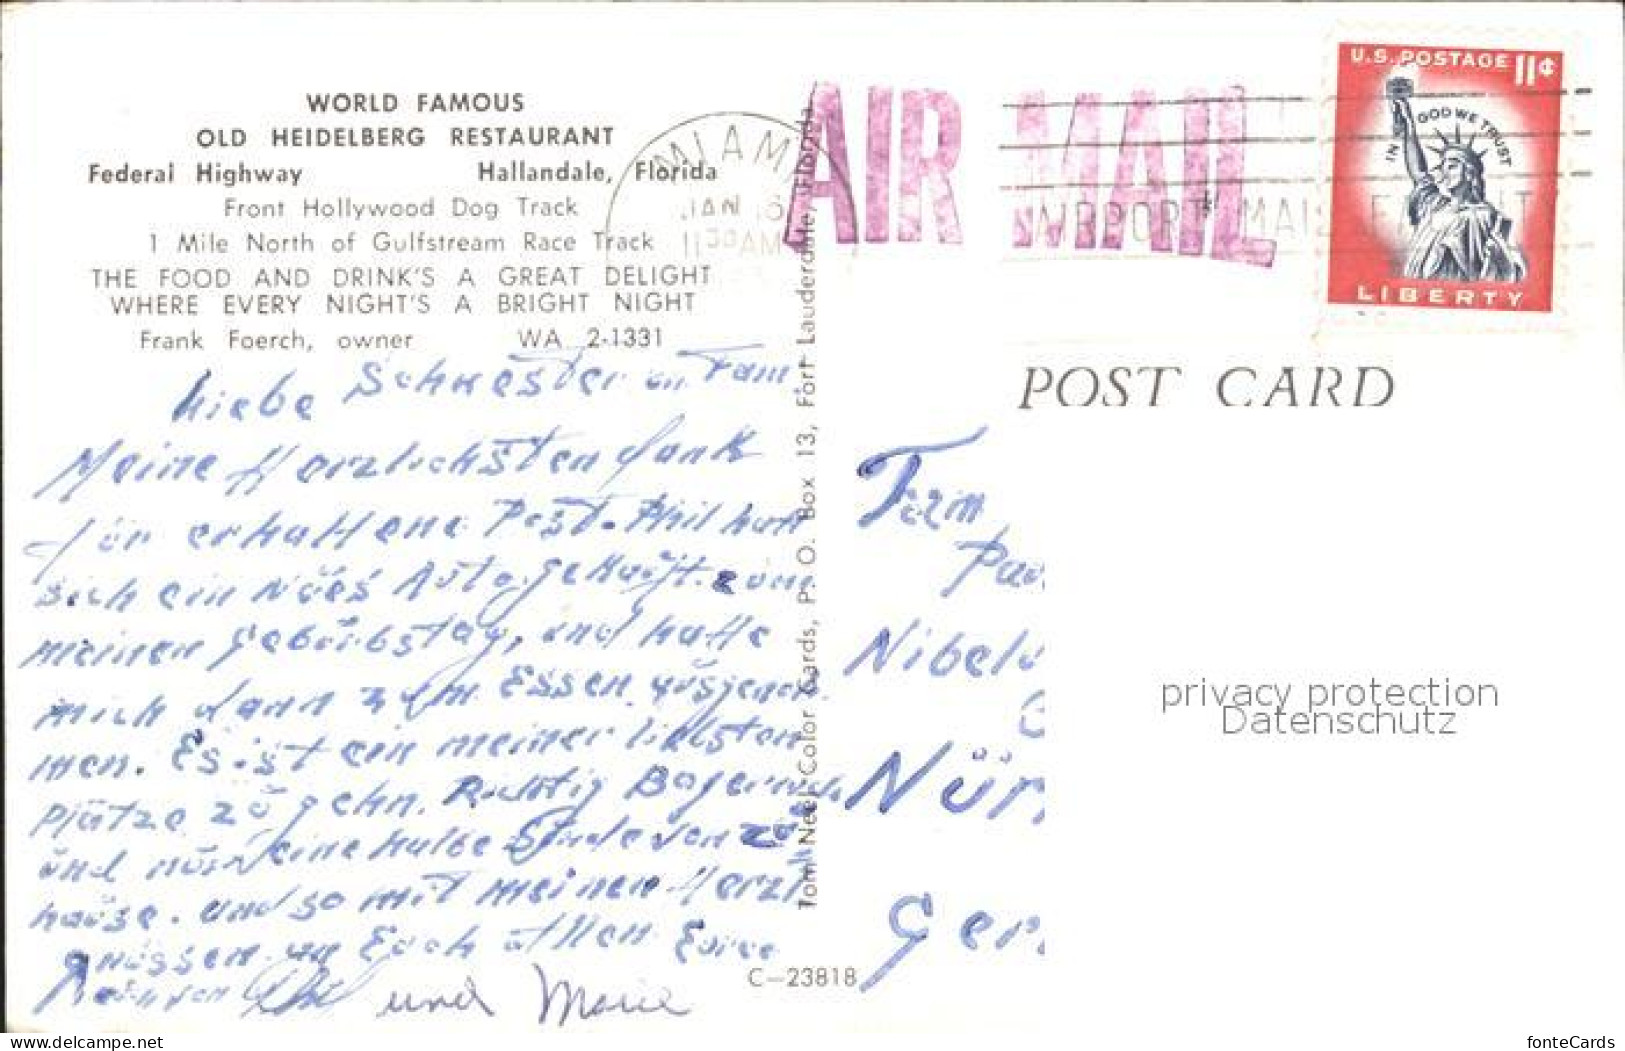 WORLD FAMOUS
OLD HEIDELBERG RESTAURANT
Federal Highway Hallandale, Florida
Front Hollywood Dog Track
1 Mile North of Gulfstream Race Track
THE FOOD AND DRINK'S A GREAT DELIGHT
WHERE EVERY NIGHT'S A BRIGHT NIGHT
Frank Foerch, owner WA 2-1331
MIAMI
JAN 16
11 30 AM
AIR MAIL
AIRPORT MAIL
U.S. POSTAGE 11¢
IN GOD WE TRUST
LIBERTY
POST CARD
Liebe Schwester un Fam
Meine Herzlichsten Dank
für erhaltene Post. Phil hatt
sich ein Nöes Auto gekauft. zum
meinen Gebürbstag, und hatte
mich dann zum Essen, aüsgenom
men. Es ist ein meiner liebsten
plätze zü gehn. Richtig Bayerisch
ünd nür eine halbe Stunde von zü
haüse. und so mit meinen Herzl
grüssen an Eüch allen Eüre
und Marie
Tom Neel Color Cards, P. O. Box 13, Fort Lauderdale, Florida
C-23818
Fam
Pau
Nibelu
Nür
Ger
privacy protection
Datenschutz
www.delcampe.net
fonteCards